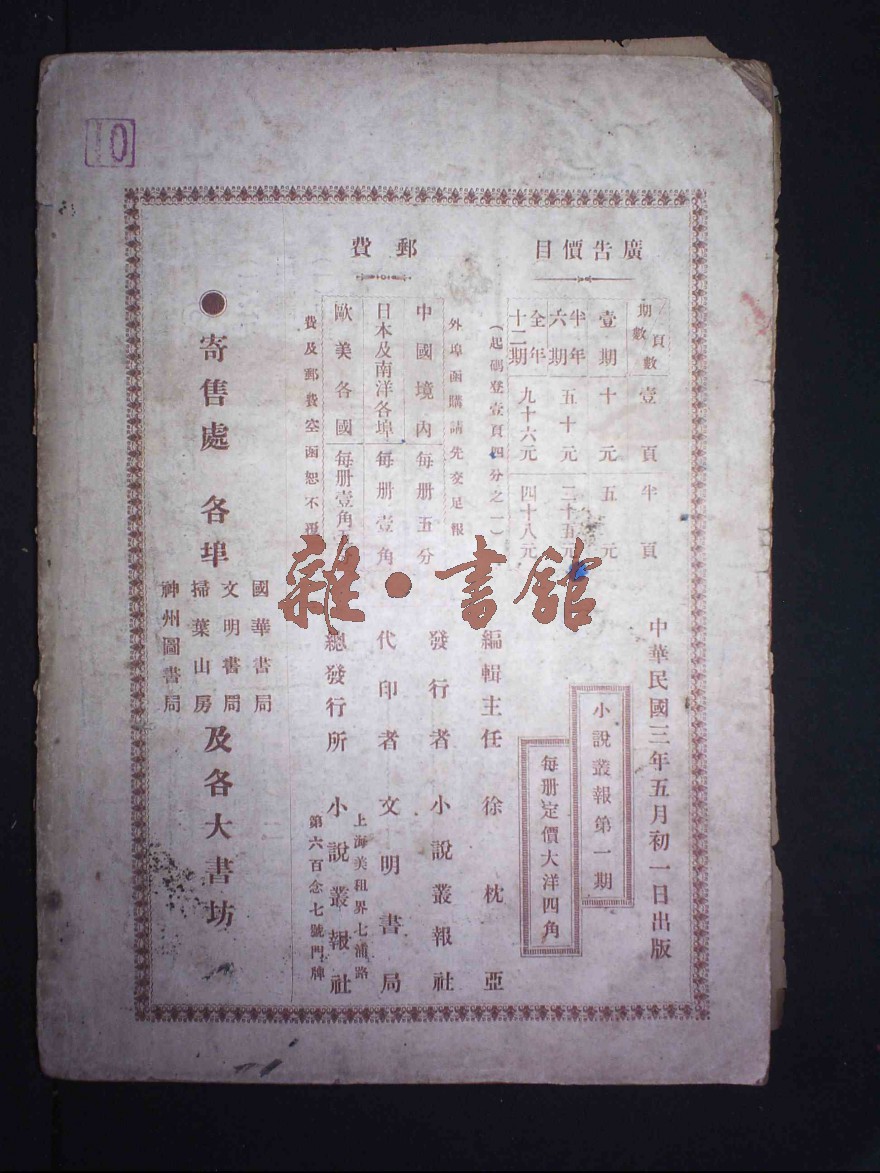 10
中華民國三年五月初一日出版
小說叢報第一期
每册定價大洋四角
編輯主任 徐枕亞
發行者 小說叢報社
代印者 文明書局
總發行所 小說叢報社
上海美租界七浦路
第六百念七號門牌
廣告價目
期數 頁數 壹頁 半頁
壹期 十元 五元
半年六期 五十元 二十五元
全年十二期 九十六元 四十八元
(起碼登壹頁四分之一)
郵費
外埠函購請先交足報
中國境內 每册五分
日本及南洋各埠 每册壹角
歐美各國 每册壹角
費及郵費空函恕不
●寄售處 各埠
國華書局
文明書局
掃葉山房
神州圖書局
及各大書坊
雜·書館